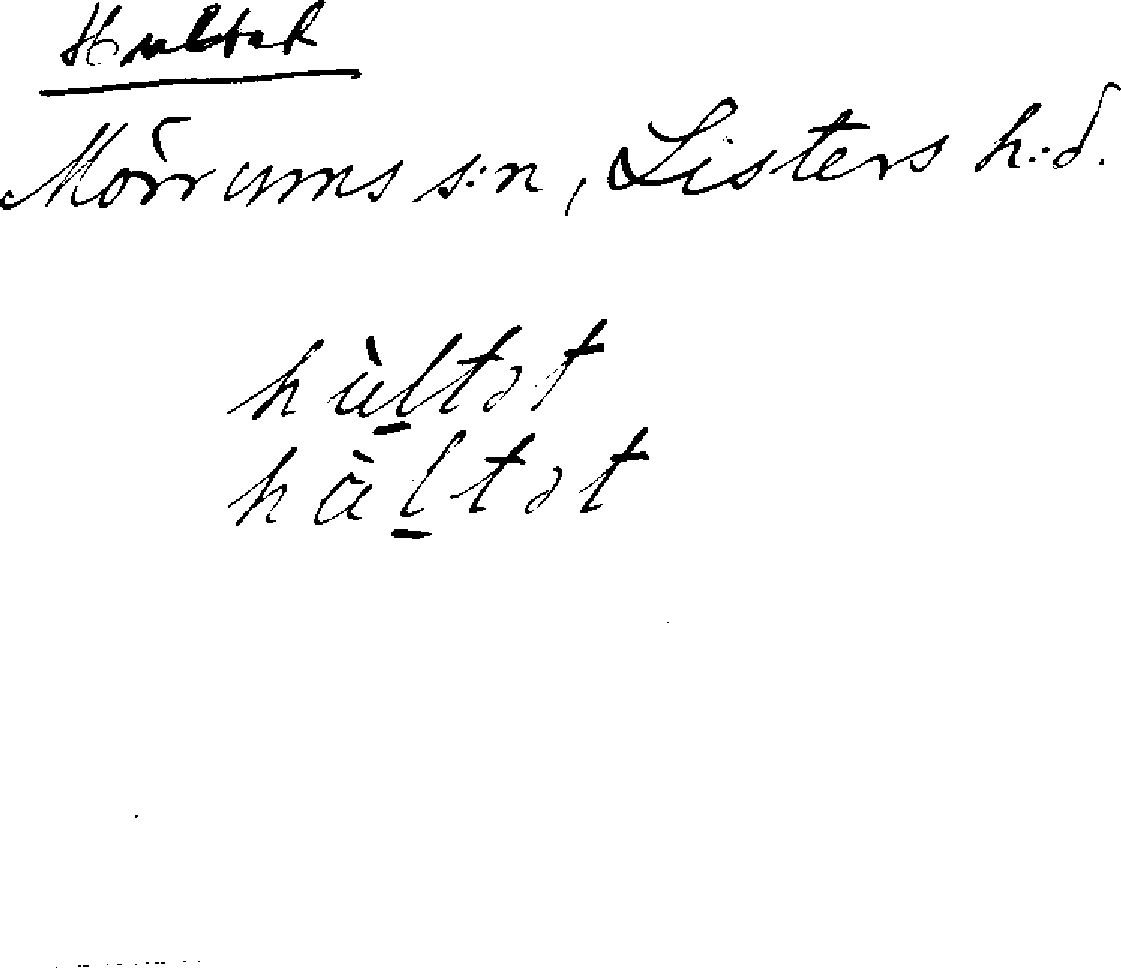 Hultet
Mörrums s:n, Listers h:d.
hùltət
hàltət